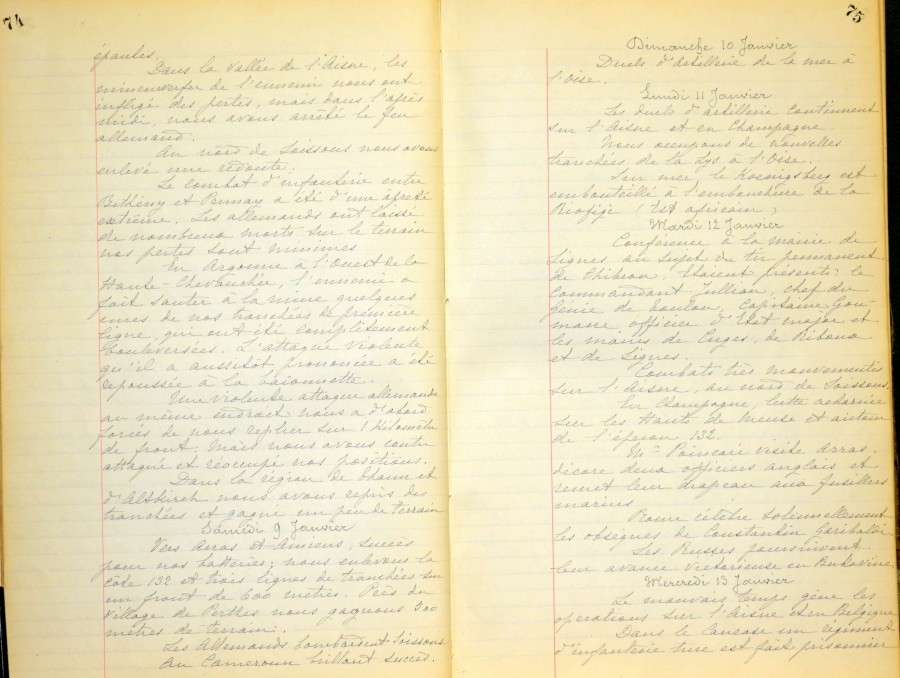 74
épaules.
Dans la vallée de l'Aisne, les
minenwerfer de l'ennemi nous ont
infligé des pertes, mais dans l'après
midi, nous avons arrêté le feu
allemand.
Au nord de Soissons nous avons
enlevé une redoute.
Le combat d'infanterie entre
Bethény et Prunay a été d'une âpreté
extrême. Les allemands ont laissé
de nombreux morts sur le terrain
nos pertes sont minimes
En Argonne à l'Ouest de la
Haute-Chevauchée, l'ennemi a
fait sauter à la mine quelques
unes de nos tranchées de première
ligne, qui ont été complètement
bouleversées. L'attaque violente
qu'il a aussitôt prononcée a été
repoussée à la baïonnette.
Une violente attaque allemande
au même endroit nous a d'abord
forcés de nous replier sur 1 kilomètre
de front. Mais nous avons contre
attaqué et réoccupé nos positions.
Dans la région de Thann et
d'Altkirch nous avons repris des
tranchées et gagné un peu de terrain
Samedi 9 Janvier
Vers Arras et Amiens, succès
pour nos batteries; nous enlevons la
côte 132 et trois lignes de tranchées sur
un front de 600 mètres. Près du
village de Perthes nous gagnons 500
mètres de terrain.
Les Allemands bombardent Soissons.
Au Cameroun brillant succès.
75
Dimanche 10 Janvier
Duels d'artillerie de la mer à
l'Oise.
Lundi 11 Janvier
Les duels d'artillerie continuent
sur l'Aisne et en Champagne
Nous occupons de nouvelles
tranchées de la Lys à l'Oise.
Sur mer, le Koenigsberg est
embouteillé à l'embouchure de la
Riofigi (Est africain)
Mardi 12 Janvier
Conférence à la mairie de
Signes au sujet du tir permanent
de Chibron; étaient présents: le
Commandant Jullian, chef du
Génie de Toulon, Capitaine
officier d'Etat major et
les maires de Cuges, de Riboux
et de Signes.
Combats très mouvementés
sur l'Aisne, au nord de Soissons.
En Champagne, lutte acharnée
sur les Hauts de Meuse et autour
de l'éperon 132.
Mr Poincaré visite Arras,
décore deux officiers anglais et
remet leur drapeau aux fusiliers
marins
Rome célèbre solennellement
les obsèques de Constantin Garibaldi.
Les Russes poursuivent
leur avance victorieuse en Bukovine
Mercredi 13 Janvier
Le mauvais temps gêne les
opérations sur l'Aisne et en Belgique
Dans le Caucase un régiment
d'infanterie turc est fait prisonnier